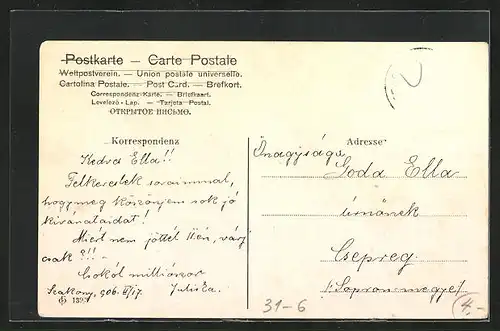 Postkarte — Carte Postale
Weltpostverein. — Union postale universelle.
Cartolina Postale. — Post Card. — Brefkort.
Correspondenz-Karte. — Briefkaart.
Levelező-Lap. — Tarjeta Postal.
ОТКРЫТОЕ ПИСЬМО.
Korrespondenz
Adresse
Kedves Ella!!
Felkereslek soraimmal,
hogymeg köszönjem sok jó
kivánataidat!
Miért nem jöttél
csak?!! –
Csókol milliószor
Szakony, 906. 17. Juliska.
Önagysága
Goda Ella
úrnőnek
Csepreg
/: Sopron megye:/
31-6
4,-